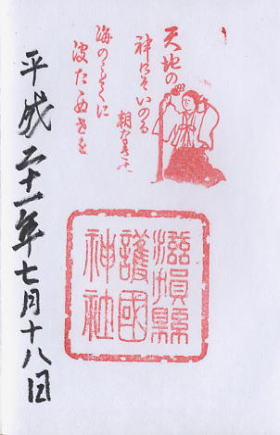 天地の
神にそいのる
朝なきの
海のことくに
波たゝぬ世を
滋賀縣
護國
神社
平成二十一年七月十八日